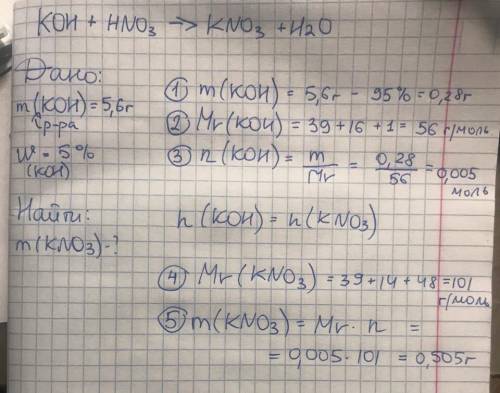 KOH + HNO₃ —> KNO₃ + H₂O
Дано:
m(KOH) = 5,6г
р-ра
W = 5%
(KOH)
Найти:
m(KNO₃) - ?
① m(KOH) = 5,6г - 95% = 0,28г
② Mr(KOH) = 39 + 16 + 1 = 56 г/моль
③ n(KOH) = m/Mr = 0,28/56 = 0,005
моль
n(KOH) = n(KNO₃)
④ Mr(KNO₃) = 39 + 14 + 48 = 101
г/моль
⑤ m(KNO₃) = Mr · n =
= 0,005 · 101 = 0,505г